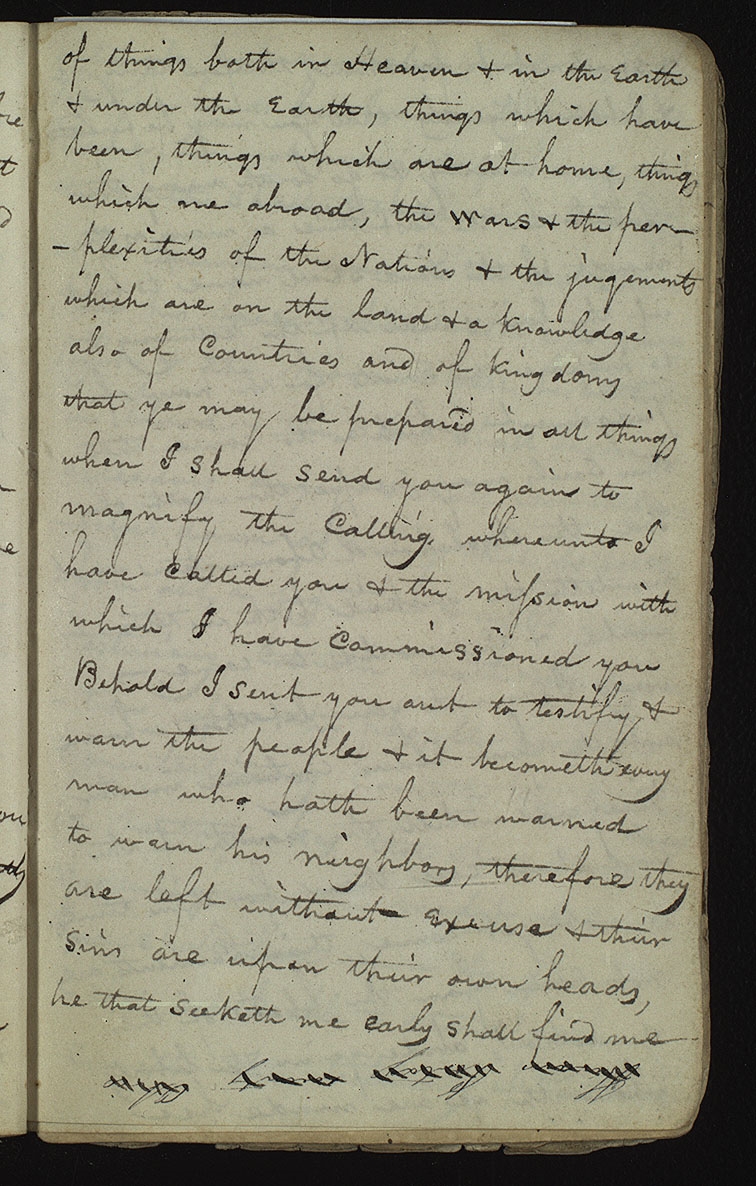 of things both in Heaven & in the Earth
& under the Earth, things which have
been, things which are at home, things
which are abroad, the wars & the per-
-plexities of the Nations & the jugements
which are on the land & a knowledge
also of Countries and of kingdoms
that ye may be prepared in all things
when I shall send you again to
magnify the Calling whereunto I
have called you & the mission with
which I have Commissioned you
Behold I sent you out to testify &
warn the people & it becometh every
man who hath been warned
to warn his neighbors, therefore they
are left without excuse & their
sins are upon their own heads,
he that seeketh me early shall find me